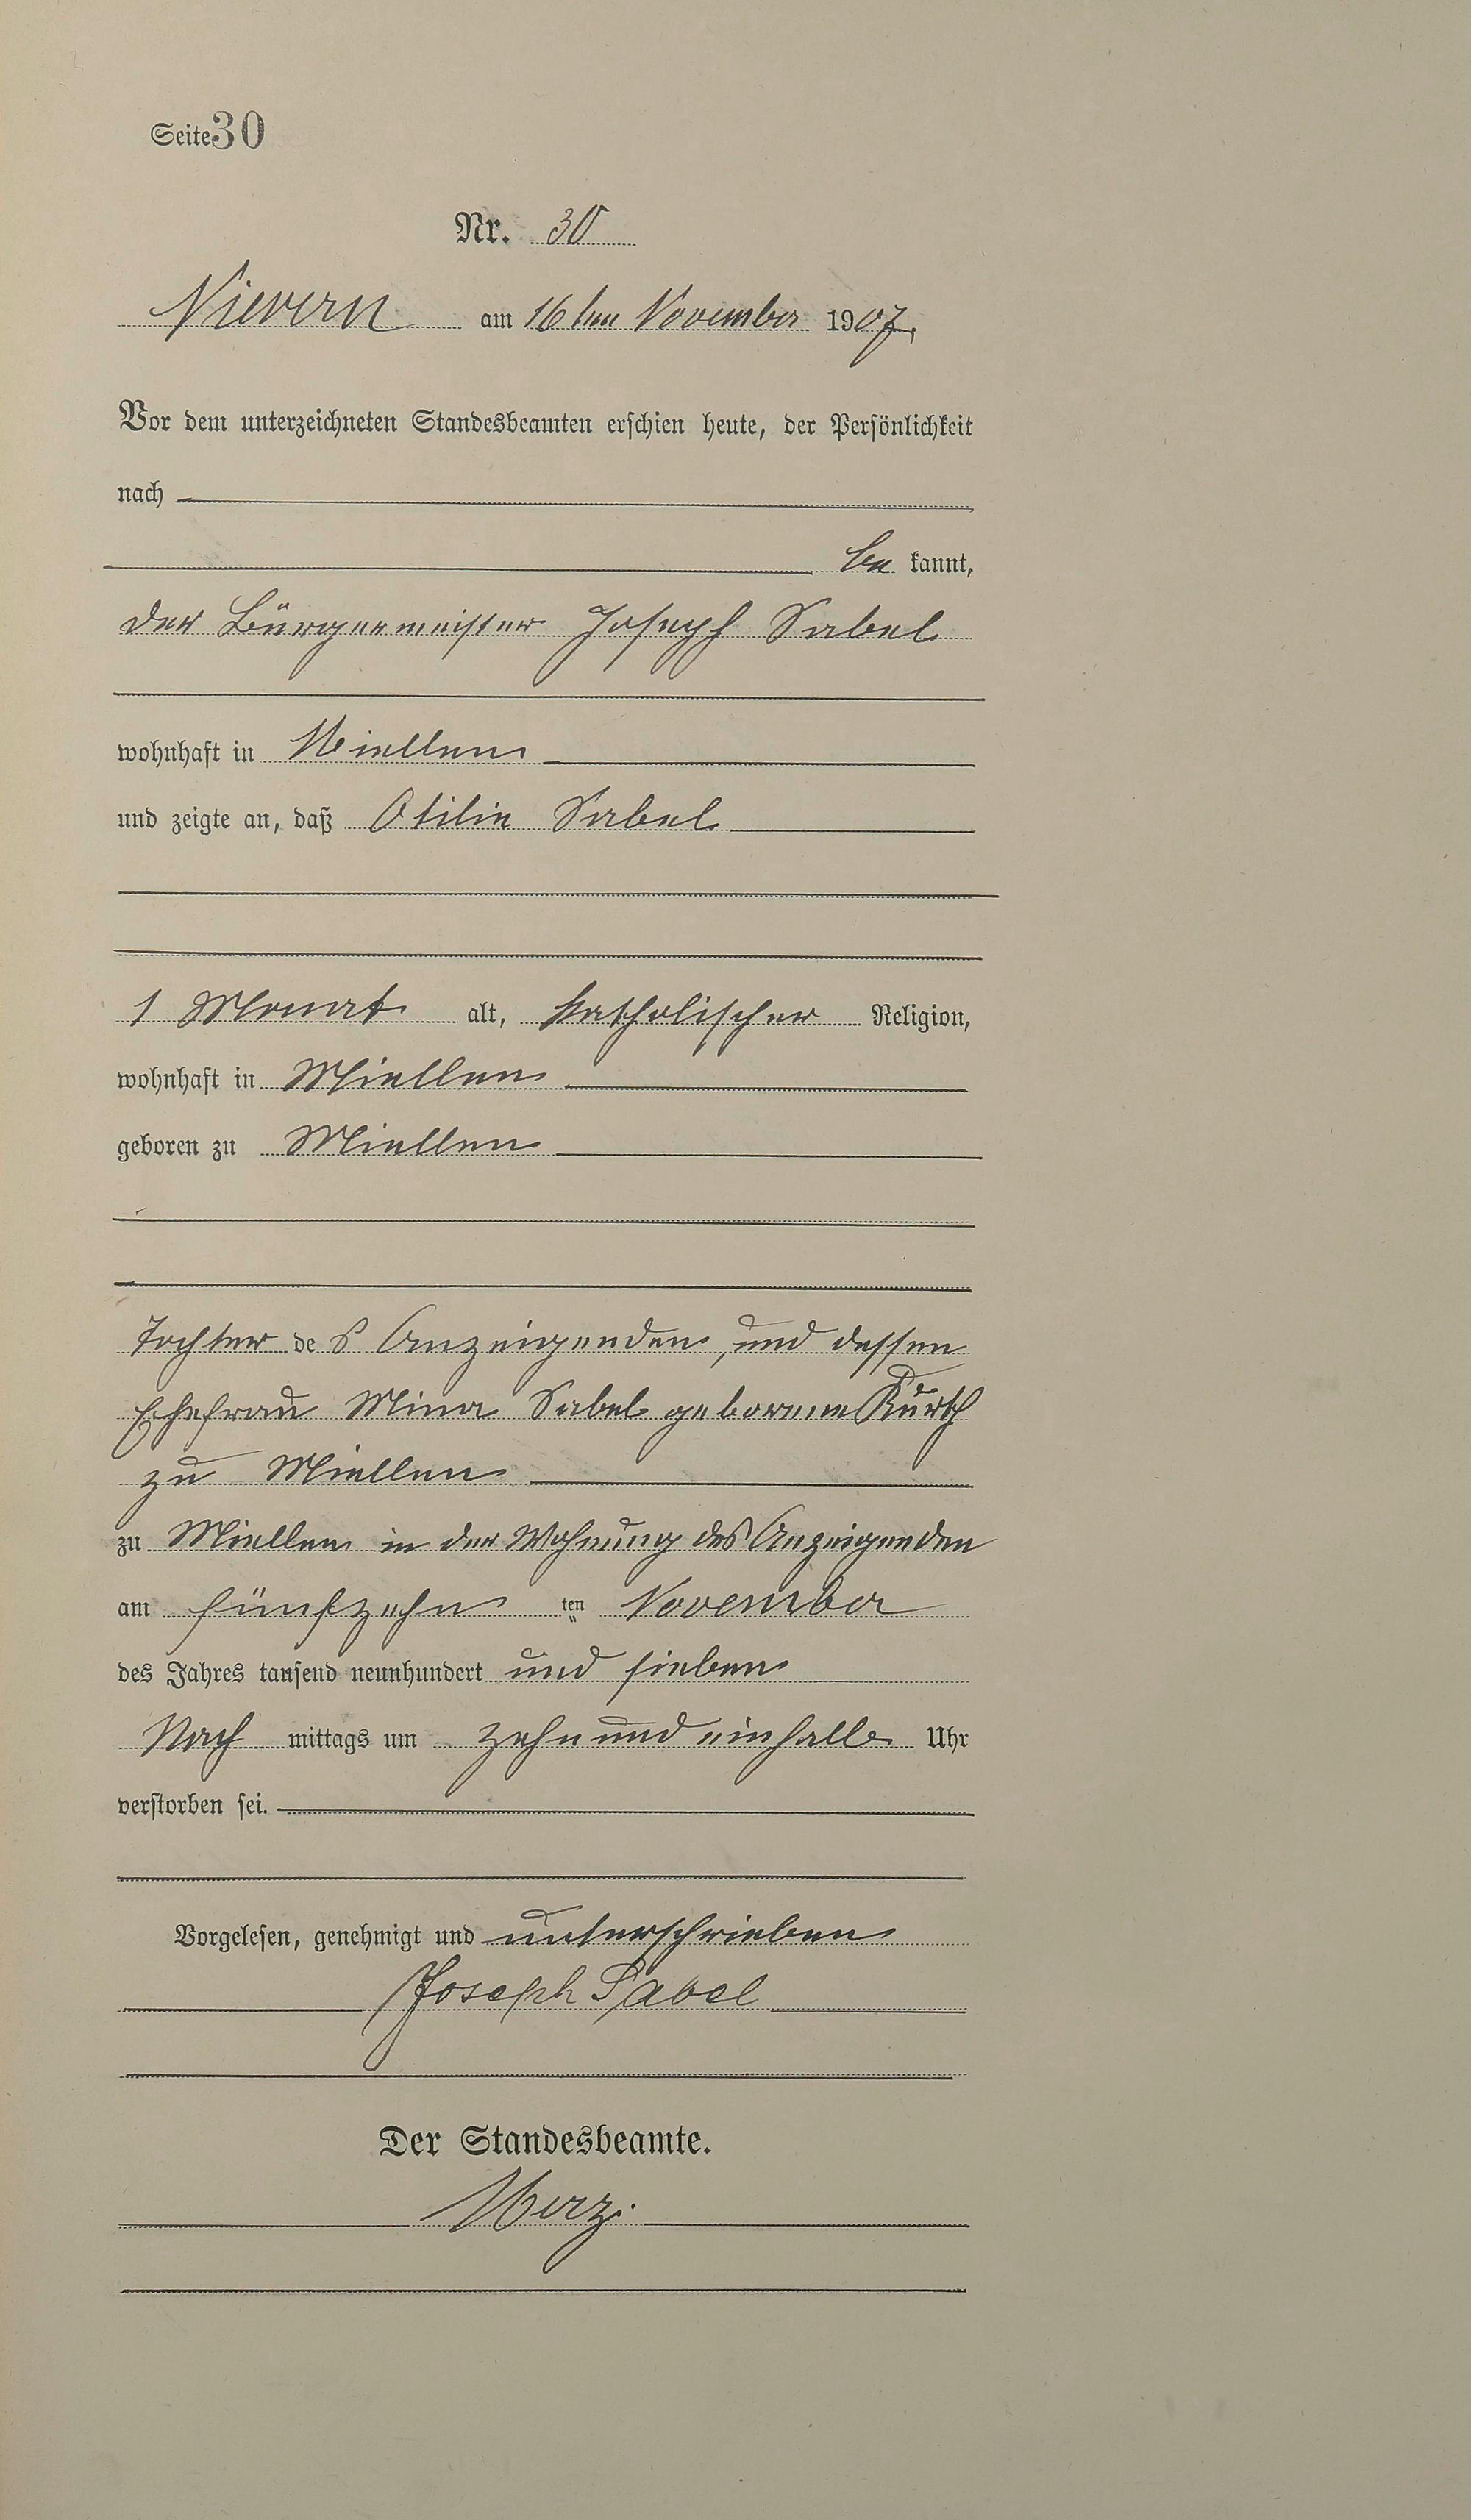 Seite 30
Nr. 30
Nievern am 16ten November 1907.
Vor dem unterzeichneten Standesbeamten erschien heute, der Persönlichkeit
nach
be kannt,
der Bürgermeister Joseph Sabel
wohnhaft in Miellen
und zeigte an, daß Otilie Sabel
1 Monat alt, katholischer Religion,
wohnhaft in Miellen
geboren zu Miellen
Tochter des Anzeigenden, und dessen
Ehefrau Mina Sabel geborene
zu Miellen
zu Miellen in der Wohnung des Anzeigenden
am fünfzehn ten November
des Jahres tausend neunhundert und sieben
Nach mittags um zehn und einhalb Uhr
verstorben sei.
Vorgelesen, genehmigt und unterschrieben
Joseph Sabel
Der Standesbeamte.
Merz